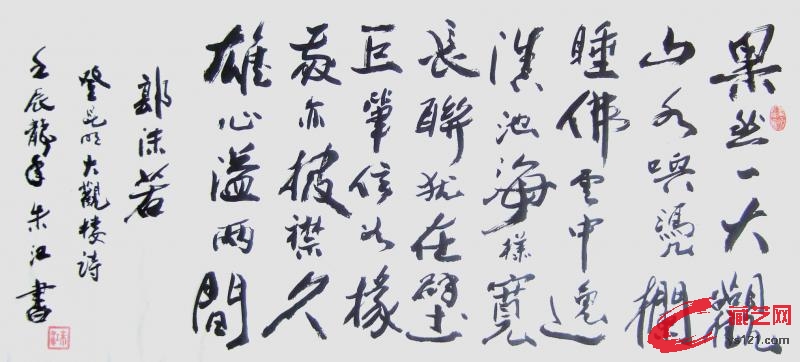 果然一大觀
山水喚憑欄
睡佛雲中逸
滇池海樣寬
長聯犹在壁
巨筆信如椽
我亦披襟久
雄心溢兩間
郭沫若
登昆明大觀樓詩
壬辰龍年朱江書
藏艺网